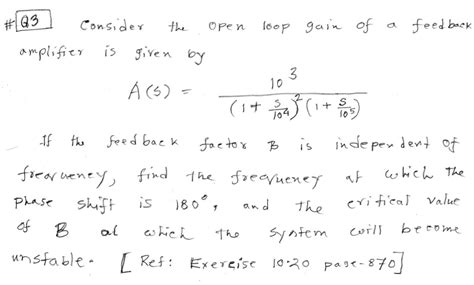 # Q3 Consider the open loop gain of a feedback
amplifier is given by
A(s) = 10³ / (1 + s/10⁴)² (1 + s/10⁵)
If the feedback factor B is independent of
frequency, find the frequency at which the
phase shift is 180°, and the critical value
of B at which the system will become
unstable. [Ref: Exercise 10.20 page-870]